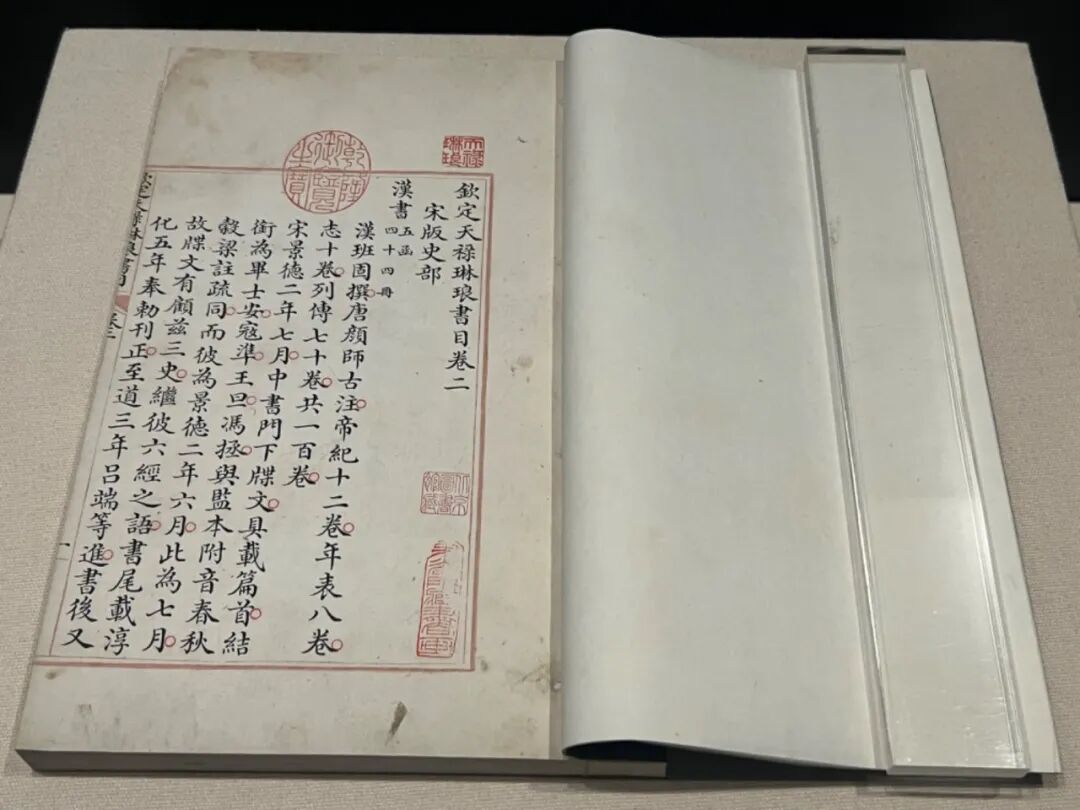 天祿琳琅
乾隆御覽之寶
欽定天祿琳琅書目卷二
宋版史部
漢書五函四十四冊
漢班固撰。唐顏師古注。帝紀十二卷。年表八卷。
志十卷。列傳七十卷。共一百卷。
宋景德二年七月。中書門下牒文。具載篇首。結
銜為畢士安。寇準。王旦。馮拯。與監本附音春秋
穀梁註疏同。而彼為景德二年六月。此為七月。
故牒文有顧茲三史。繼彼六經之語。書尾載淳
化五年奉勅刊正。至道三年呂端等進書。後又
欽定天祿琳琅書目 卷二